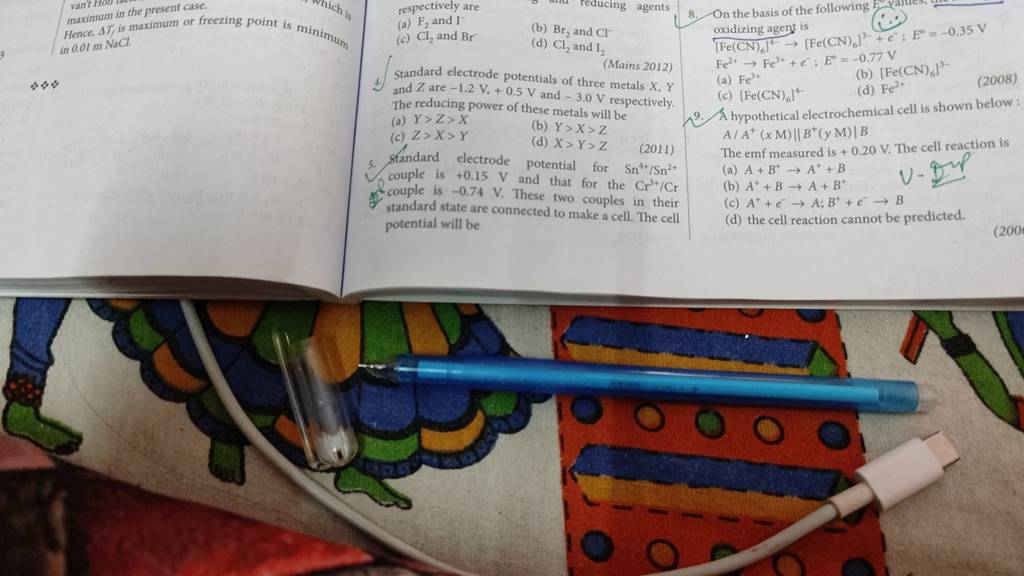 maximum in the present case.
Hence, ΔTf is maximum or freezing point is minimum
in 0.01 m NaCl.
respectively are
reducing agents
(a) F₂ and I⁻
(b) Br₂ and Cl⁻
(c) Cl₂ and Br⁻
(d) Cl₂ and I₂
(Mains 2012)
4.
Standard electrode potentials of three metals X, Y
and Z are –1.2 V, + 0.5 V and – 3.0 V respectively.
The reducing power of these metals will be
(a) Y > Z > X
(b) Y > X > Z
(c) Z > X > Y
(d) X > Y > Z
(2011)
5. Standard electrode potential for Sn⁴⁺/Sn²⁺
couple is +0.15 V and that for the Cr³⁺/Cr
couple is –0.74 V. These two couples in their
standard state are connected to make a cell. The cell
potential will be
8. On the basis of the following E° values, the
oxidizing agent is
[Fe(CN)₆]⁴⁻ → [Fe(CN)₆]³⁻ + e⁻ ; E° = –0.35 V
Fe²⁺ → Fe³⁺ + e⁻ ; E° = –0.77 V
(a) Fe³⁺
(b) [Fe(CN)₆]³⁻
(c) [Fe(CN)₆]⁴⁻
(d) Fe²⁺
(2008)
9. A hypothetical electrochemical cell is shown below :
A / A⁺ (x M) || B⁺(y M) | B
The emf measured is + 0.20 V. The cell reaction is
(a) A + B⁺ → A⁺ + B
(b) A⁺ + B → A + B⁺
(c) A⁺ + e⁻ → A; B⁺ + e⁻ → B
(d) the cell reaction cannot be predicted.
V - Imp